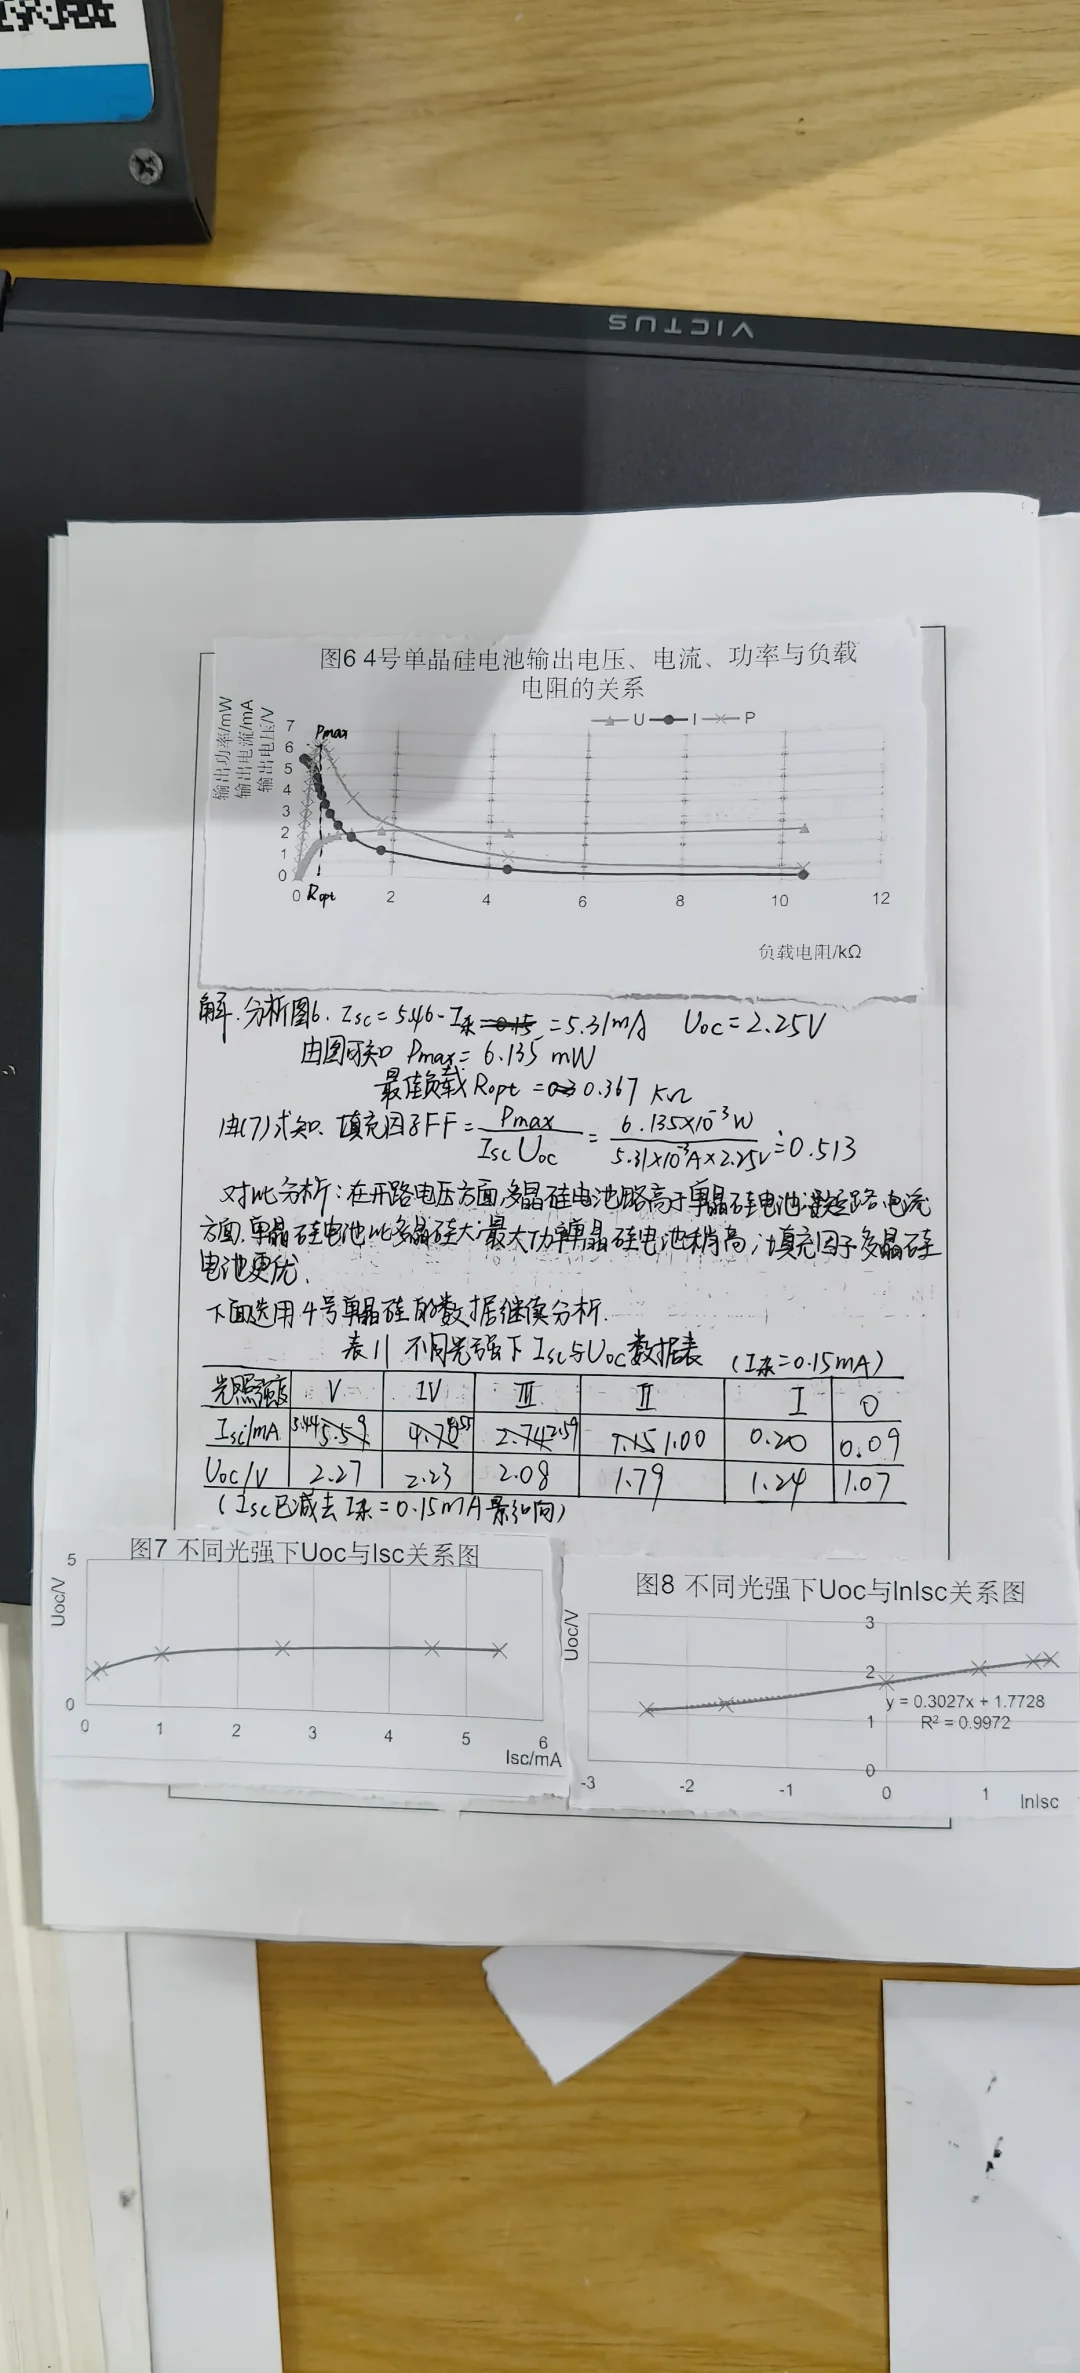 VICTUS
图6 4号单晶硅电池输出电压、电流、功率与负载
电阻的关系
输出功率/mW
输出电流/mA
输出电压/V
U I P
7
6
5
4
3
2
1
0
Pmax
0 Ropt 2 4 6 8 10 12
负载电阻/kΩ
解.分析图6. Isc=5.46-I系=0.15=5.31mA Uoc=2.25V
由图可知 Pmax=6.135 mW
最佳负载Ropt=0.367 KΩ
由(7)求知. 填充因子FF=Pmax/IscUoc=6.135×10⁻³W/5.31×10⁻³A×2.25V≐0.513
对比分析:在开路电压方面,多晶硅电池略高于单晶硅电池;短路电流
方面,单晶硅电池比多晶硅大;最大功率单晶硅电池稍高;填充因子多晶硅
电池更优.
下面选用4号单晶硅的数据继续分析.
表11 不同光强下Isc与Uoc数据表 (I系=0.15mA)
光照强度 V IV III II I 0
Isc/mA 5.44 5.59 4.70 4.55 2.74 2.59 1.15 1.00 0.20 0.09
Uoc/V 2.27 2.23 2.08 1.79 1.24 1.07
(Isc已减去I系=0.15mA影响)
图7 不同光强下Uoc与Isc关系图
Uoc/V
5
0
0 1 2 3 4 5 6
Isc/mA
图8 不同光强下Uoc与lnIsc关系图
Uoc/V
3
2
y = 0.3027x + 1.7728
R² = 0.9972
1
0
-3 -2 -1 0 1
lnIsc